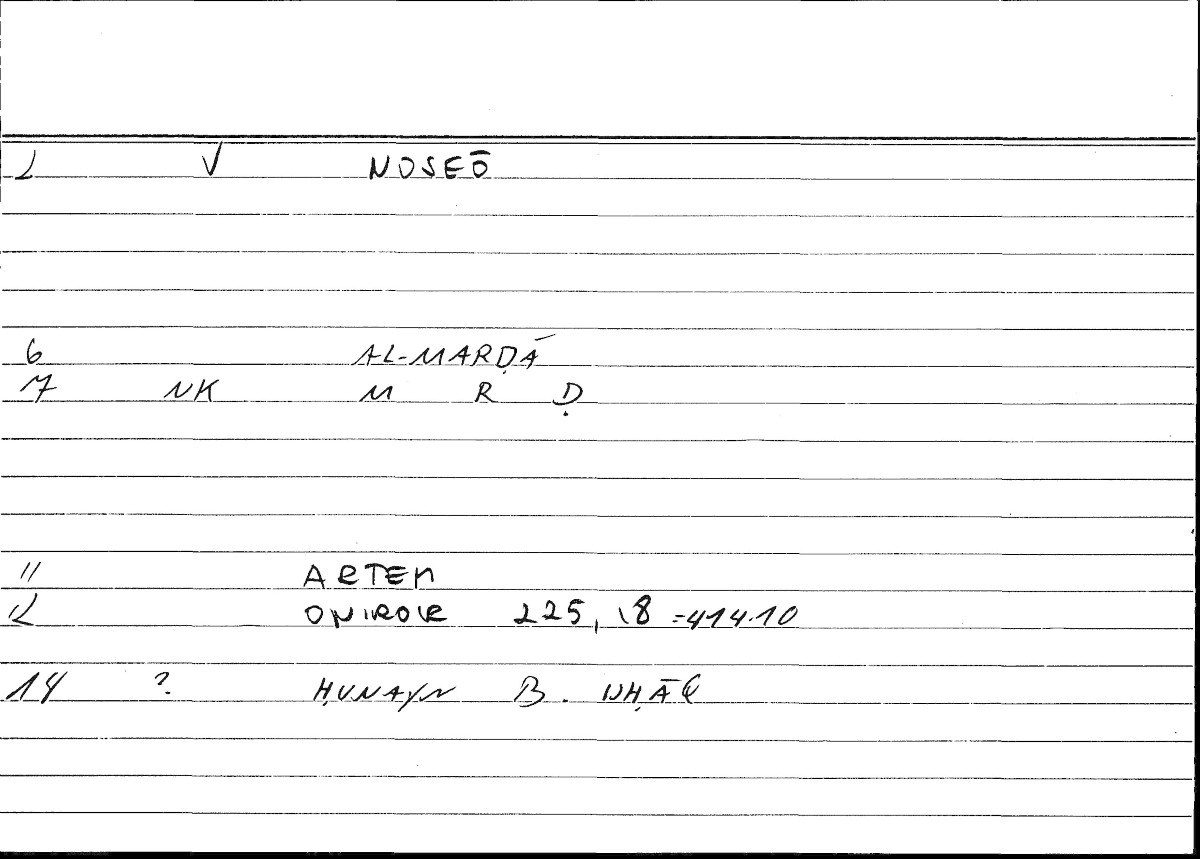 2 V NOSEŌ
6 AL-MARḌĀ
7 NK M R Ḍ
11 ARTEM
12 ONIROKR 225, 18 =414.10
14 ? ḤUNAYN B. ISḤĀQ